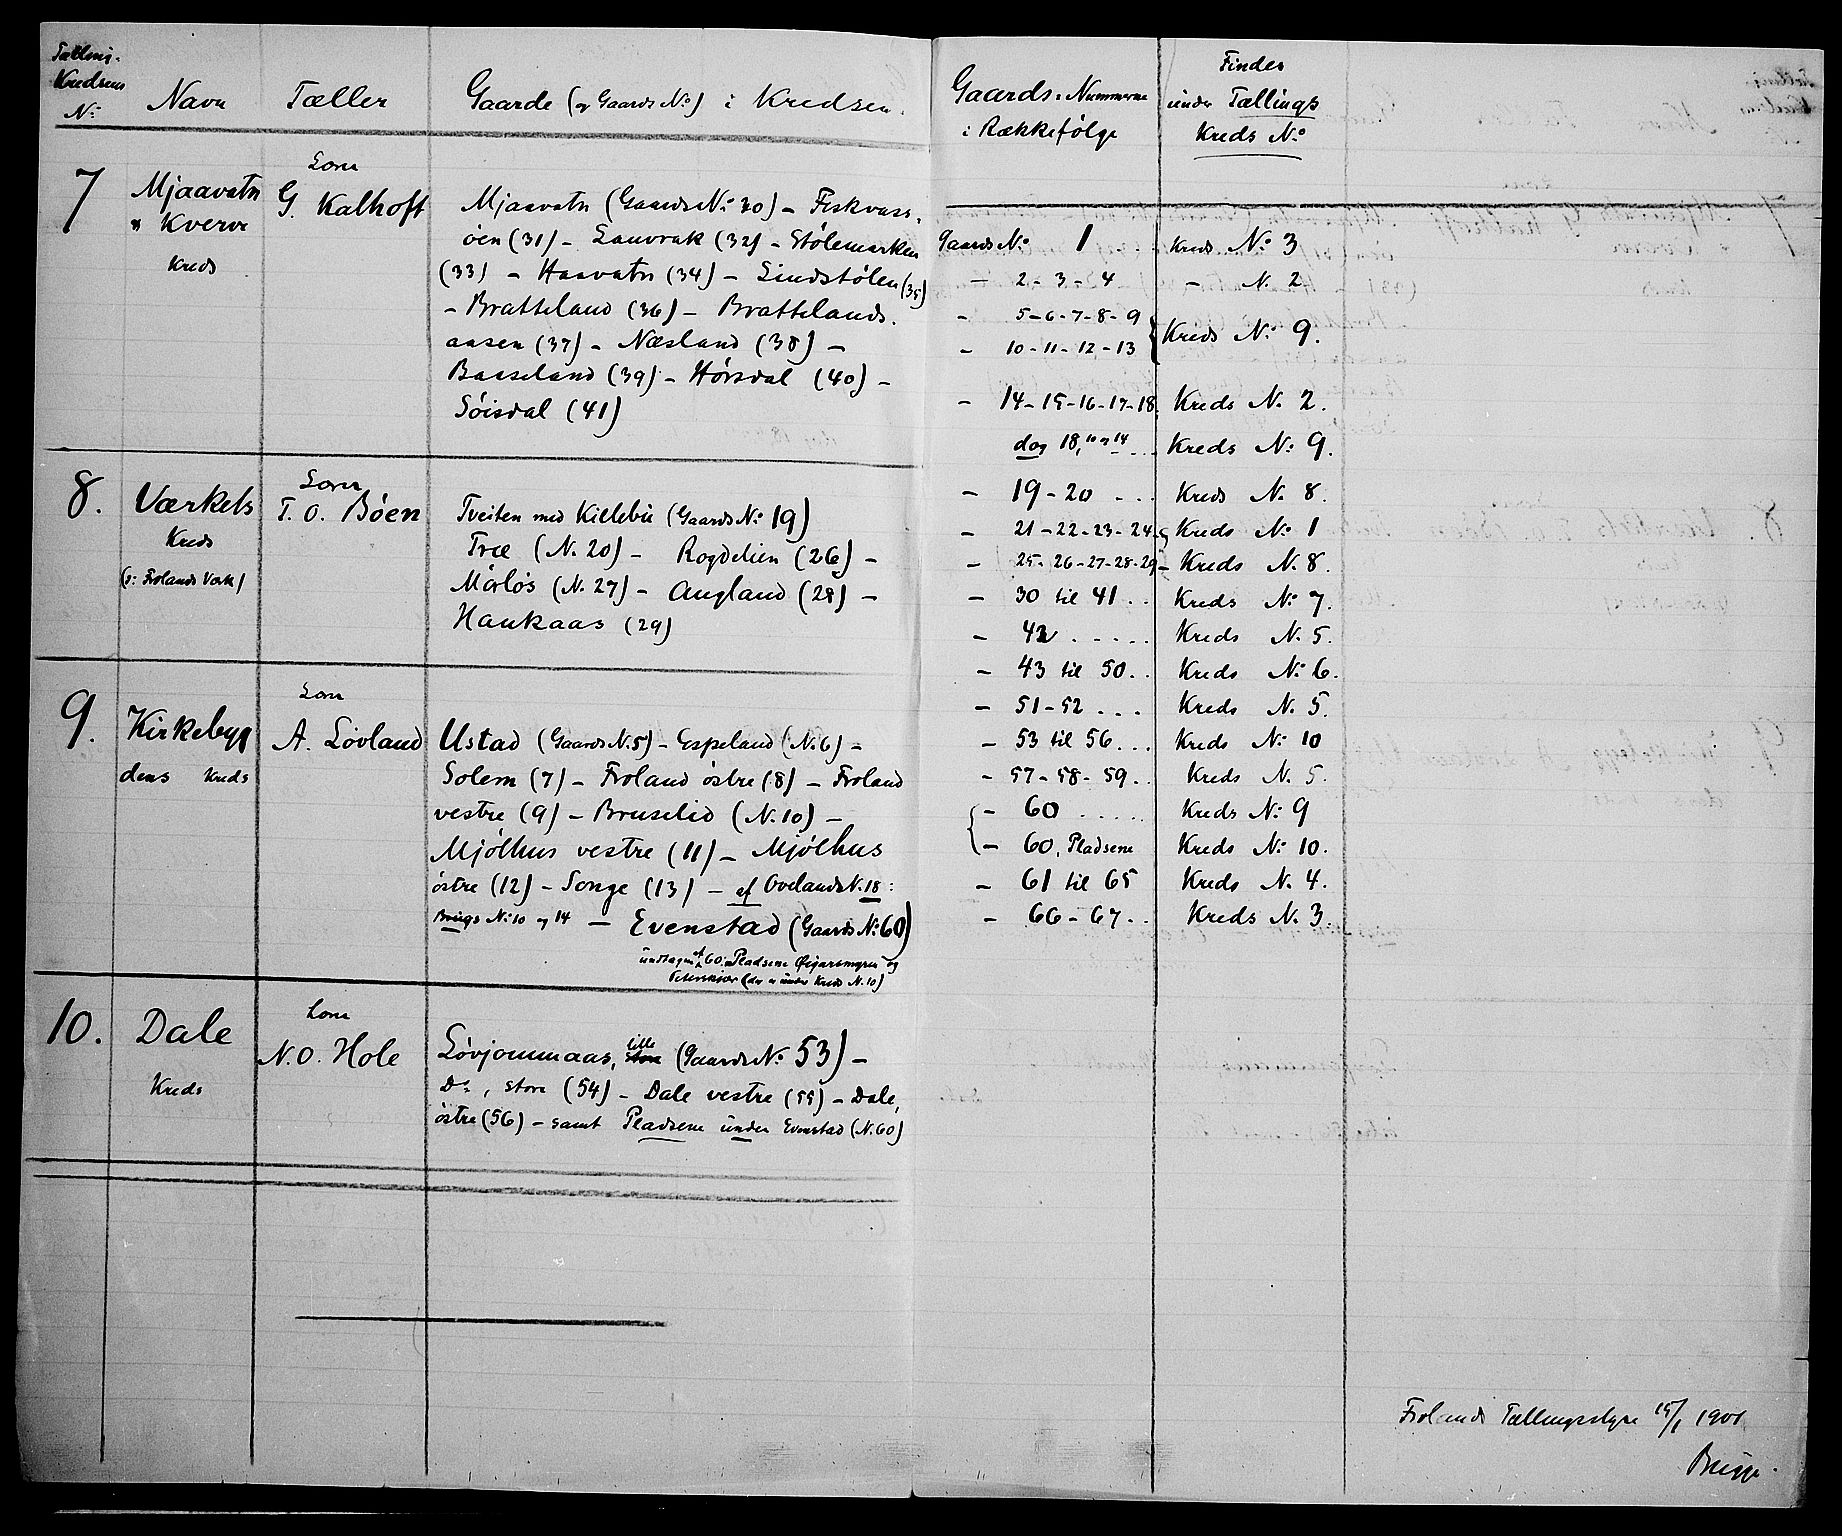 Tællings-
Kredsens
No
Navn
Tæller
Gaarde (og Gaards No) i Kredsen.
7
Mjaavatn
og Kverve
Kreds
Lærer
G. Kalhoft
Mjaavatn (Gaards No 30) – Fiskvass-
öen (31) – Lauvrak (32) – Stölemarken
(33) – Haavatn (34) – Lindstölen (35)
– Bratteland (36) – Brattelands-
aasen (37) – Næsland (38) –
Baaseland (39) – Hörsdal (40) –
Söisdal (41)
8.
Værkets
Kreds
(o: Frolands Værk)
Lærer
T. O. Böen
Tveiten med Killebu (Gaards No 19)
Træ (No 20) – Rogdelien (26) –
Mörlös (No 27) – Augland (28) –
Haukaas (29)
9.
Kirkebyg
dens Kreds
Lærer
A. Lövland
Ustad (Gaards No 5) – Espeland (No 6) –
Solem (7) – Froland östre (8) – Froland
vestre (9) – Bruselid (No 10) –
Mjölhus vestre (11) – Mjölhus
östre (12) – Songe (13) – af Ovelands No 18:
Brugs No 10 og 14 – Evenstad (Gaards No 60)
undtagen af 60: Pladsene og
(der er under Kreds No 10)
10.
Dale
Kreds
Lærer
N. O. Hole
Lövjommaas, lille (Gaards No 53) –
Do, store (54) – Dale vestre (55) – Dale,
östre (56) – samt Pladsene under Evenstad (No 60)
Gaards-Nummerne
i Rækkefölge
Findes
under Tællings
Kreds No
Gaards No 1 Kreds No 3
– 2 - 3 - 4 – No 2
– 5 - 6 - 7 - 8 - 9
– 10 - 11 - 12 - 13 } Kreds No 9.
– 14 - 15 - 16 - 17 - 18. Kreds No 2.
dog 18, 10 og 14 ... Kreds No 9.
– 19 - 20 ... Kreds No 8.
– 21 - 22 - 23 - 24 Kreds No 1
– 25 - 26 - 27 - 28 - 29 – Kreds No 8.
– 30 til 41 .. Kreds No 7.
– 42 ..... Kreds No 5.
– 43 til 50 .. Kreds No 6.
– 51 - 52 ... Kreds No 5.
– 53 til 56 ... Kreds No 10
– 57 - 58 - 59 .. Kreds No 5.
– 60 ..... Kreds No 9
– 60, Pladsene Kreds No 10.
– 61 til 65 Kreds No 4.
– 66 - 67 .. Kreds No 3.
Frolands Tællingsstyre 15/1 1901